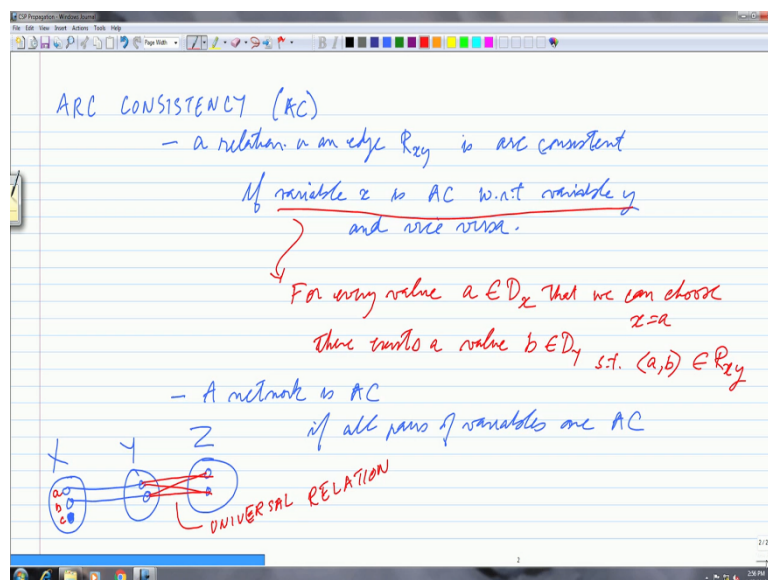 CSP Propagation - Windows Journal
File Edit View Insert Actions Tools Help
Page Width
B I
ARC CONSISTENCY (AC)
- a relation in an edge Rxy is arc consistent
if variable x is AC w.r.t variable y
and vice versa.
For every value a ∈ Dx that we can choose
x=a
there exists a value b ∈ Dy s.t. <a,b> ∈ Rxy
- A network is AC
if all pairs of variables are AC
X Y Z
a
b
c
UNIVERSAL RELATION
2/2
2
2:56 PM